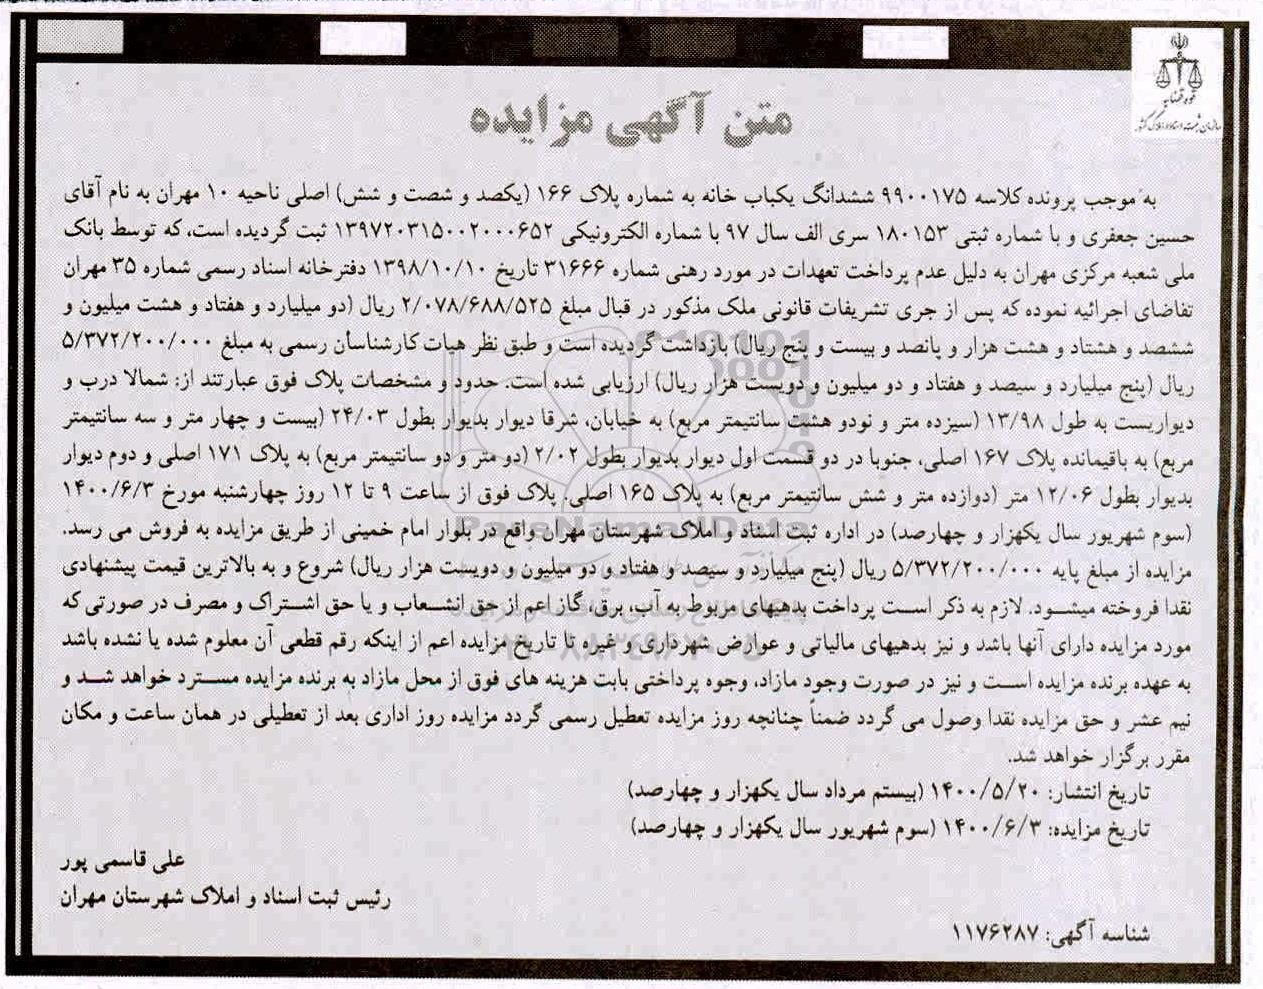 قوه قضاییه
سازمان ثبت اسناد و املاک کشور
متن آگهی مزایده
به موجب پرونده کلاسه ۹۹۰۰۱۷۵ ششدانگ یکباب خانه به شماره پلاک ۱۶۶ (یکصد و شصت و شش) اصلی ناحیه ۱۰ مهران به نام آقای
حسین جعفری و با شماره ثبتی ۱۸۰۱۵۳ سری الف سال ۹۷ با شماره الکترونیکی ۱۳۹۷۲۰۳۱۵۰۰۲۰۰۰۶۵۲ ثبت گردیده است، که توسط بانک
ملی شعبه مرکزی مهران به دلیل عدم پرداخت تعهدات در مورد رهنی شماره ۳۱۶۶۶ تاریخ ۱۳۹۸/۱۰/۱۰ دفترخانه اسناد رسمی شماره ۳۵ مهران
تقاضای اجرائیه نموده که پس از جری تشریفات قانونی ملک مذکور در قبال مبلغ ۲/۰۷۸/۶۸۸/۵۲۵ ریال (دو میلیارد و هفتاد و هشت میلیون و
ششصد و هشتاد و هشت هزار و پانصد و بیست و پنج ریال) بازداشت گردیده است و طبق نظر هیات کارشناسان رسمی به مبلغ ۵/۳۷۲/۲۰۰/۰۰۰
ریال (پنج میلیارد و سیصد و هفتاد و دو میلیون و دویست هزار ریال) ارزیابی شده است. حدود و مشخصات پلاک فوق عبارتند از: شمالا درب و
دیواریست به طول ۱۳/۹۸ (سیزده متر و نودو هشت سانتیمتر مربع) به خیابان، شرقا دیوار بدیوار بطول ۲۴/۰۳ (بیست و چهار متر و سه سانتیمتر
مربع) به باقیمانده پلاک ۱۶۷ اصلی، جنوبا در دو قسمت اول دیوار بدیوار بطول ۲/۰۲ (دو متر و دو سانتیمتر مربع) به پلاک ۱۷۱ اصلی و دوم دیوار
بدیوار بطول ۱۲/۰۶ متر (دوازده متر و شش سانتیمتر مربع) به پلاک ۱۶۵ اصلی. پلاک فوق از ساعت ۹ تا ۱۲ روز چهارشنبه مورخ ۱۴۰۰/۶/۳
(سوم شهریور سال یکهزار و چهارصد) در اداره ثبت اسناد و املاک شهرستان مهران واقع در بلوار امام خمینی از طریق مزایده به فروش می رسد.
مزایده از مبلغ پایه ۵/۳۷۲/۲۰۰/۰۰۰ ریال (پنج میلیارد و سیصد و هفتاد و دو میلیون و دویست هزار ریال) شروع و به بالاترین قیمت پیشنهادی
نقدا فروخته میشود. لازم به ذکر است پرداخت بدهیهای مربوط به آب، برق، گاز اعم از حق انشعاب و یا حق اشتراک و مصرف در صورتی که
مورد مزایده دارای آنها باشد و نیز بدهیهای مالیاتی و عوارض شهرداری و غیره تا تاریخ مزایده اعم از اینکه رقم قطعی آن معلوم شده یا نشده باشد
به عهده برنده مزایده است و نیز در صورت وجود مازاد، وجوه پرداختی بابت هزینه های فوق از محل مازاد به برنده مزایده مسترد خواهد شد و
نیم عشر و حق مزایده نقدا وصول می گردد ضمناً چنانچه روز مزایده تعطیل رسمی گردد مزایده روز اداری بعد از تعطیلی در همان ساعت و مکان
مقرر برگزار خواهد شد.
تاریخ انتشار: ۱۴۰۰/۵/۲۰ (بیستم مرداد سال یکهزار و چهارصد)
تاریخ مزایده: ۱۴۰۰/۶/۳ (سوم شهریور سال یکهزار و چهارصد)
علی قاسمی پور
رئیس ثبت اسناد و املاک شهرستان مهران
شناسه آگهی: ۱۱۷۶۲۸۷
ParsNamadData